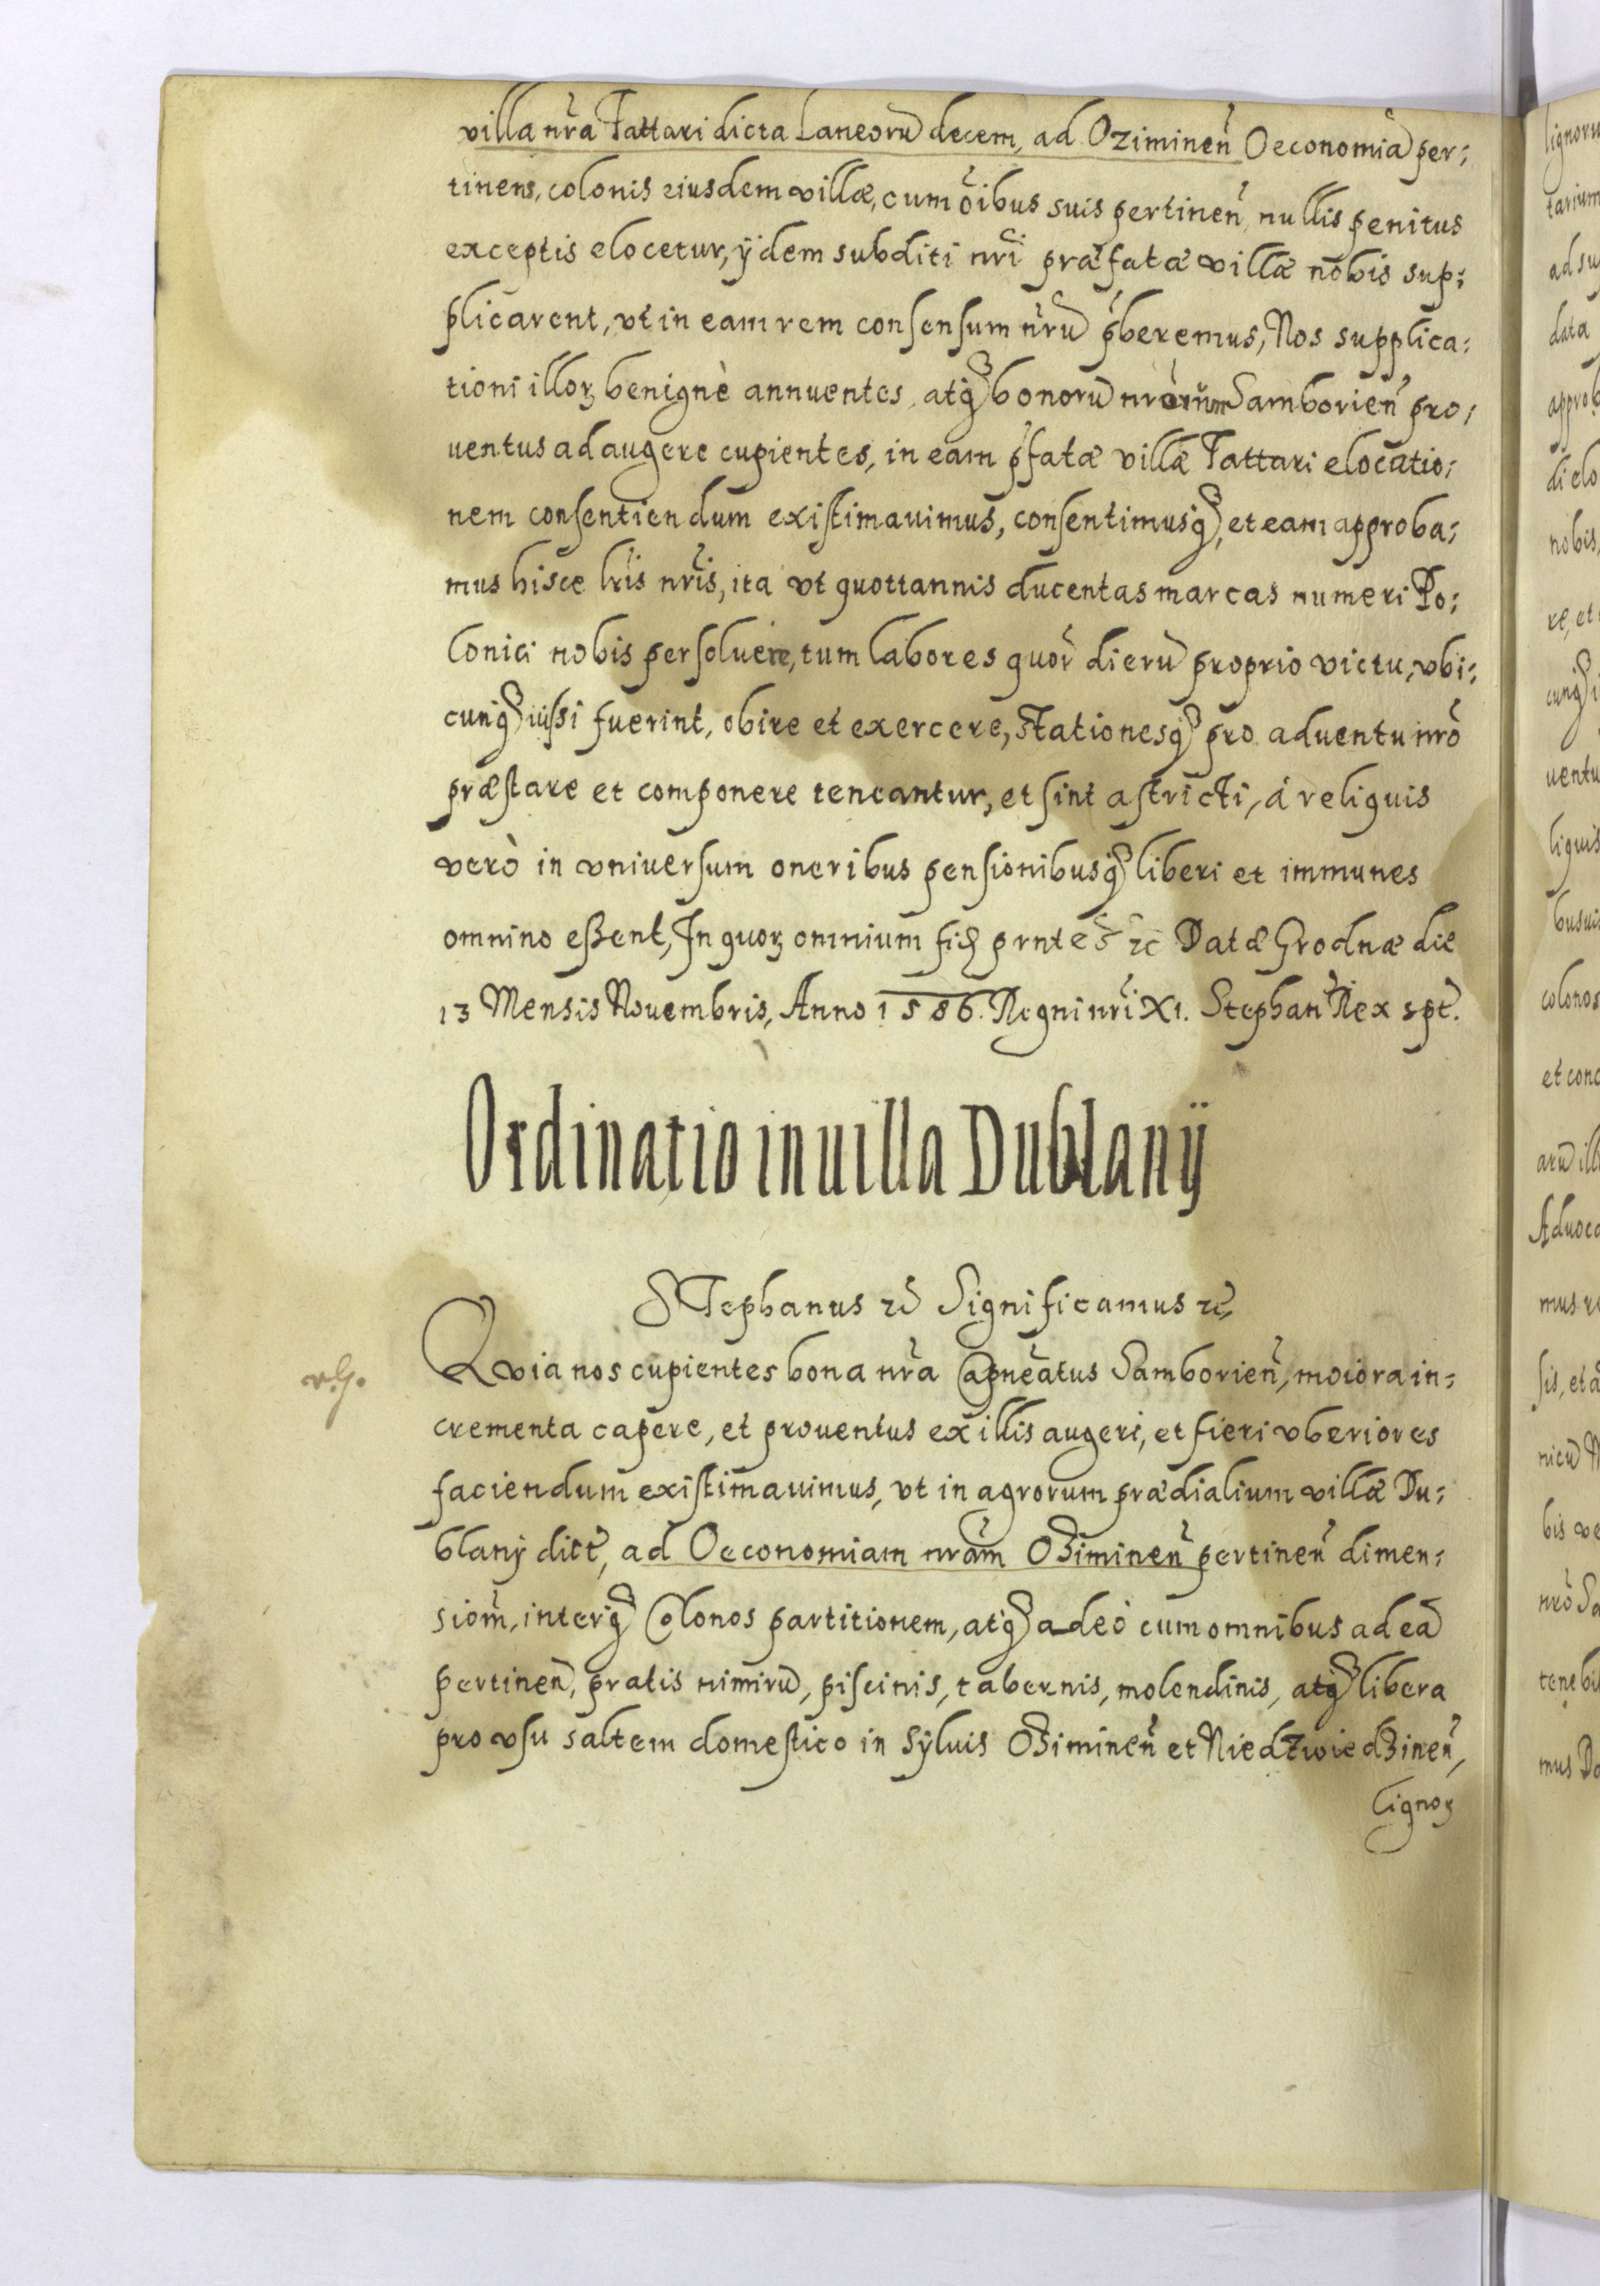 villa nr̃a Tattari dicta Laneorū decem, ad Oziminen̄ Oeconomiā per;
tinens, colonis eiusdem villæ, cum õibus suis pertinen̄, nullis penitus
exceptis elocetur, ÿdem subditi nr̃i præfatæ villæ nobis sup;
plicarent, vt in eam rem consensum nr̃ū p̃beremus, Nos supplica;
tioni illoꝝ benignè annuentes, atq́ꝫ bonorū nrorum Samborien̄ pro;
uentus adaugere cupientes, in eam p̃fatæ villæ Tattari elocatio;
nem consentiendum existimauimus, consentimusq́ꝫ, et eam approba;
mus hisce lr̃is nr̃is, ita vt quottannis ducentas marcas numeri Po;
lonici nobis persoluere, tum labores quor̃ dierū proprio victu, vbi;
cunq́ꝫ iussi fuerint, obire et exercere, stationesq́ꝫ pro aduentu nr̃o
præstare et componere teneantur, et sint astricti, á reliquis
verò in vniuersum oneribus pensionibusq́ꝫ liberi et immunes
omnino eßent, In quoꝝ omnium fiḍ prntes ꝛc̃ Datæ Grodnæ die
13 Mensis Nouembris, Anno 1586. Regni nr̃i XI. Stephan⁹ Rex spt̃.
Ordinatio in uilla Dublanÿ
Stephanus ꝛc̃ Significamus ꝛc̃,
Qvia nos cupientes bona nr̃a Capnẽatus Samborien̄, moiora in;
crementa capere, et prouentus ex illis augeri, et fieri vberiores
faciendum existimauimus, vt in agrorum prædialium villæ Du;
blanÿ dict̃, ad Oeconomiam nrãm Oʒiminen̄ pertinen̄ dimen;
siom̃, interq́ꝫ Colonos partitionem, atq́ꝫ adeò cum omnibus ad eā
pertinen̄, pratis nimirū, piscinis, tabernis, molendinis, atq́ꝫ libera
pro vsu saltem domestico in Syluis Oʒiminen̄ et Niedʒwiedʒinen̄,
lignoꝝ